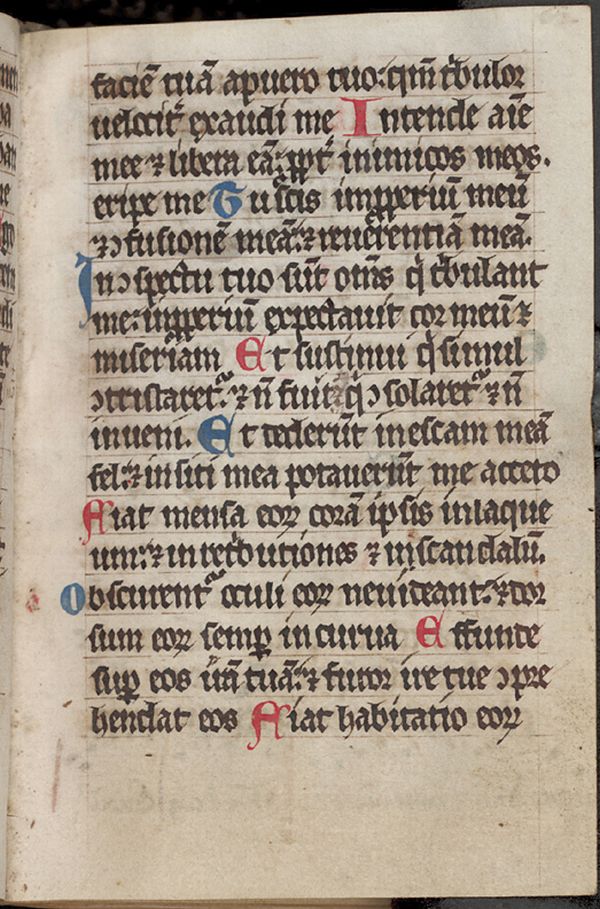 faciē tuā a puero tuo: qm̄ t̄bulor
uelocit᷑ exaudi me Intende aīe
mee ⁊ libera eā: ꝓpt᷑ inimicos meos.
eripe me Tu scis inꝓperiū meū
⁊ ꝯfusionē meā: ⁊ reuerentiā meā.
In ꝯspectu tuo sūt om̄s q̄ t̄bulant
me: inꝓperiū expectauit cor meū ⁊
miseriam Et sustinui q̄ simul
ꝯtristaret᷑: ⁊ n̄ fuit: ⁊ q̄ ꝯsolaret᷑ ⁊ n̄
inueni. Et dederūt in escam meā
fel: ⁊ in siti mea potauerūt me aceto
Fiat mensa eoꝝ corā ipsis in laque
um: ⁊ in ret̄butiones ⁊ in scandalū.
Obscurent᷑ oculi eoꝝ ne uideant: ⁊ dor
sum eoꝝ semꝑ incurua Effunde
suꝑ eos irā tuā: ⁊ furor ire tue ꝯpre
hendat eos Fiat habitatio eoꝝ